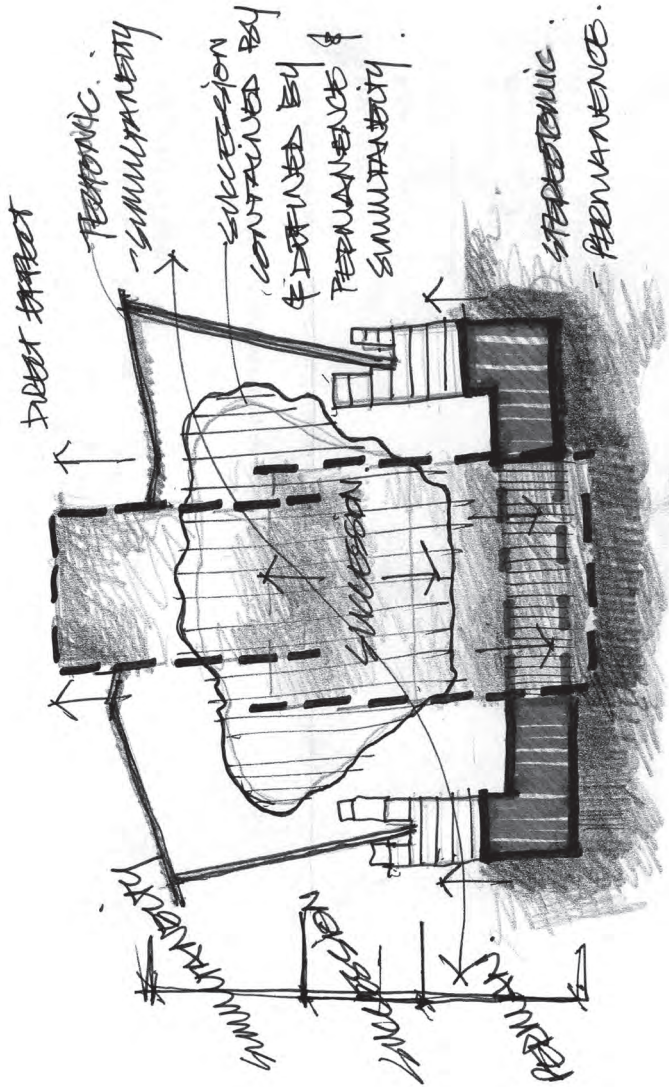 DIRECT EFFECT
TECTONIC.
- SIMULTANEITY
- SUCCESSION
CONTAINED BY
& DEFINED BY
PERMANENCE &
SIMULTANEITY.
STEREOTOMIC
- PERMANENCE.
SUCCESSION.
SIMULTANEITY.
SUCCESSION
PERMAN.